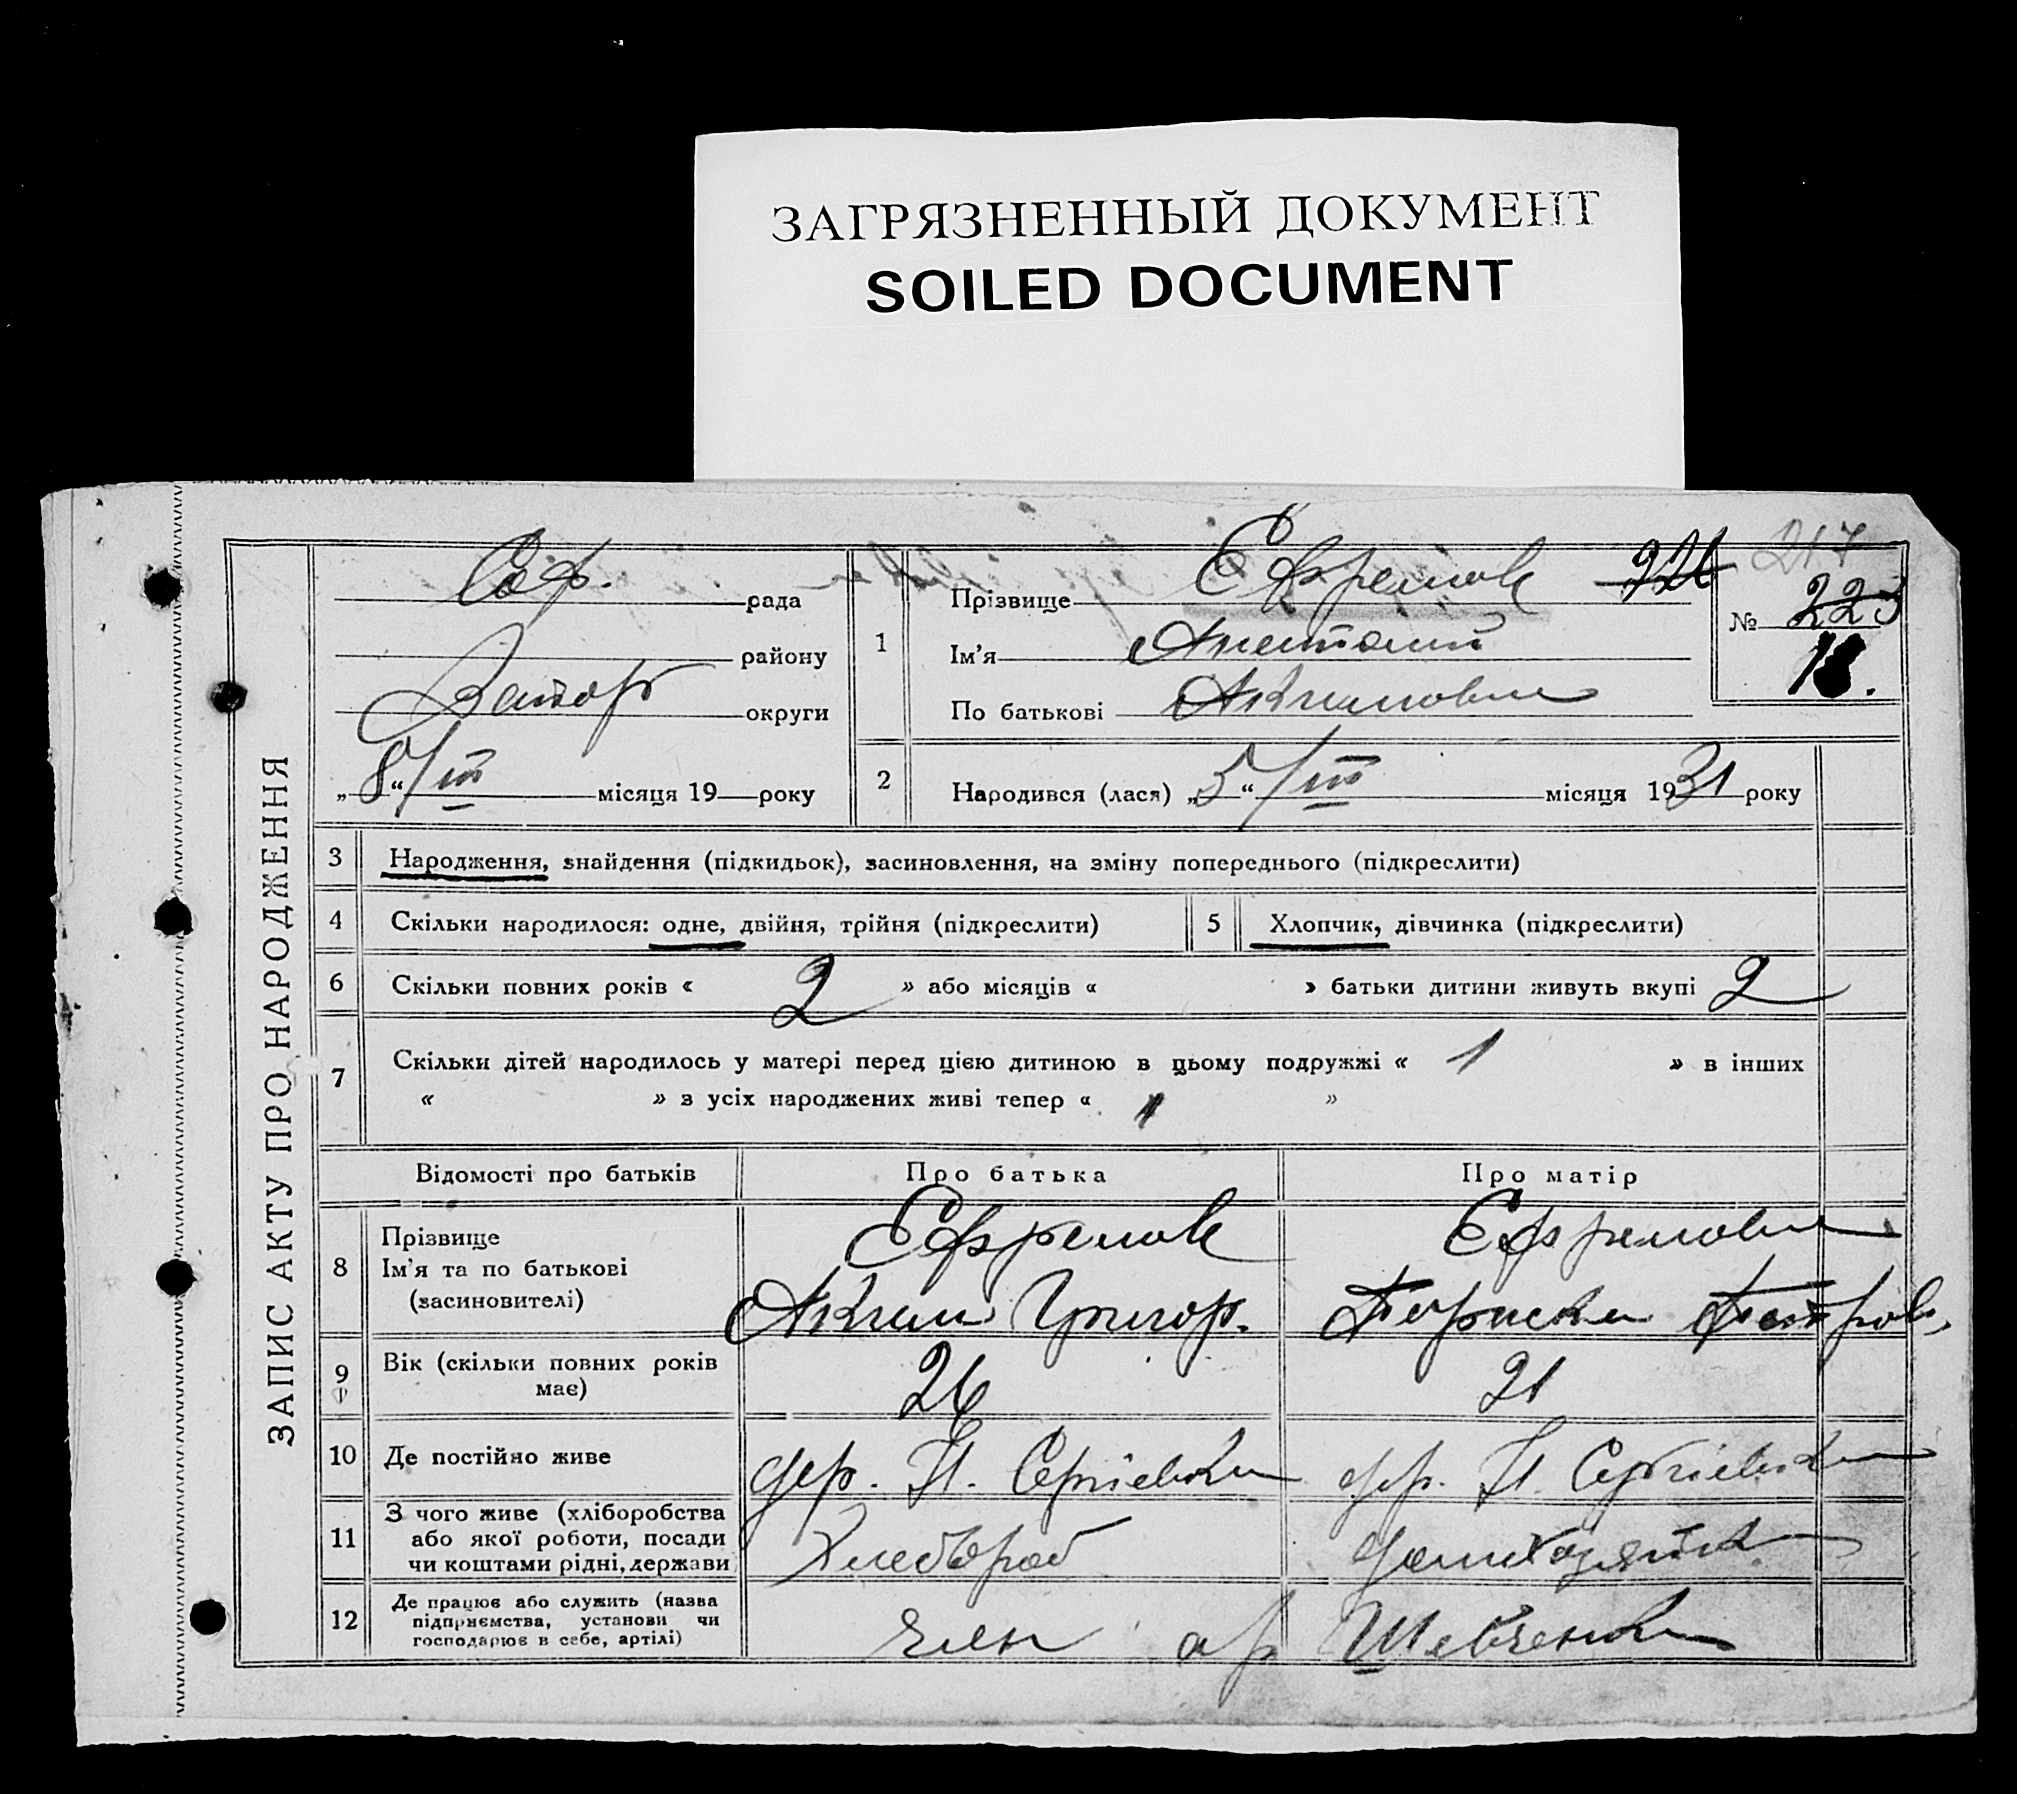 ЗАГРЯЗНЕННЫЙ ДОКУМЕНТ
SOILED DOCUMENT
ЗАПИС АКТУ ПРО НАРОДЖЕННЯ
Соф. рада
району
Запор округи
„8“/III місяця 19 року
1 Прізвище Ефремов
Ім'я Анатолий
По батькові Акимович
217
№ 223
18.
2 Народився (лася) „5“/III місяця 1931 року
3 Народження, знайдення (підкидьок), засиновлення, на зміну попереднього (підкреслити)
4 Скільки народилося: одне, двійня, трійня (підкреслити) 5 Хлопчик, дівчинка (підкреслити)
6 Скільки повних років « 2 » або місяців « » батьки дитини живуть вкупі 2
7 Скільки дітей народилось у матері перед цією дитиною в цьому подружжі « 1 » в інших
« » з усіх народжених живі тепер « 1 »
Відомості про батьків Про батька Про матір
8 Прізвище
Ім'я та по батькові
(засиновителі)
Ефремов
Аким Григор.
Ефремова
Петров.
9 Вік (скільки повних років
має)
26 21
10 Де постійно живе дер. Н. Сергіевка дер. Н. Сергіевка
11 З чого живе (хліборобства
або якої роботи, посади
чи коштами рідні, держави
Хлебороб домхозяйка
12 Де працює або служить (назва
підприємства, установи чи
господарює в себе, артілі)
член ар Шевченка